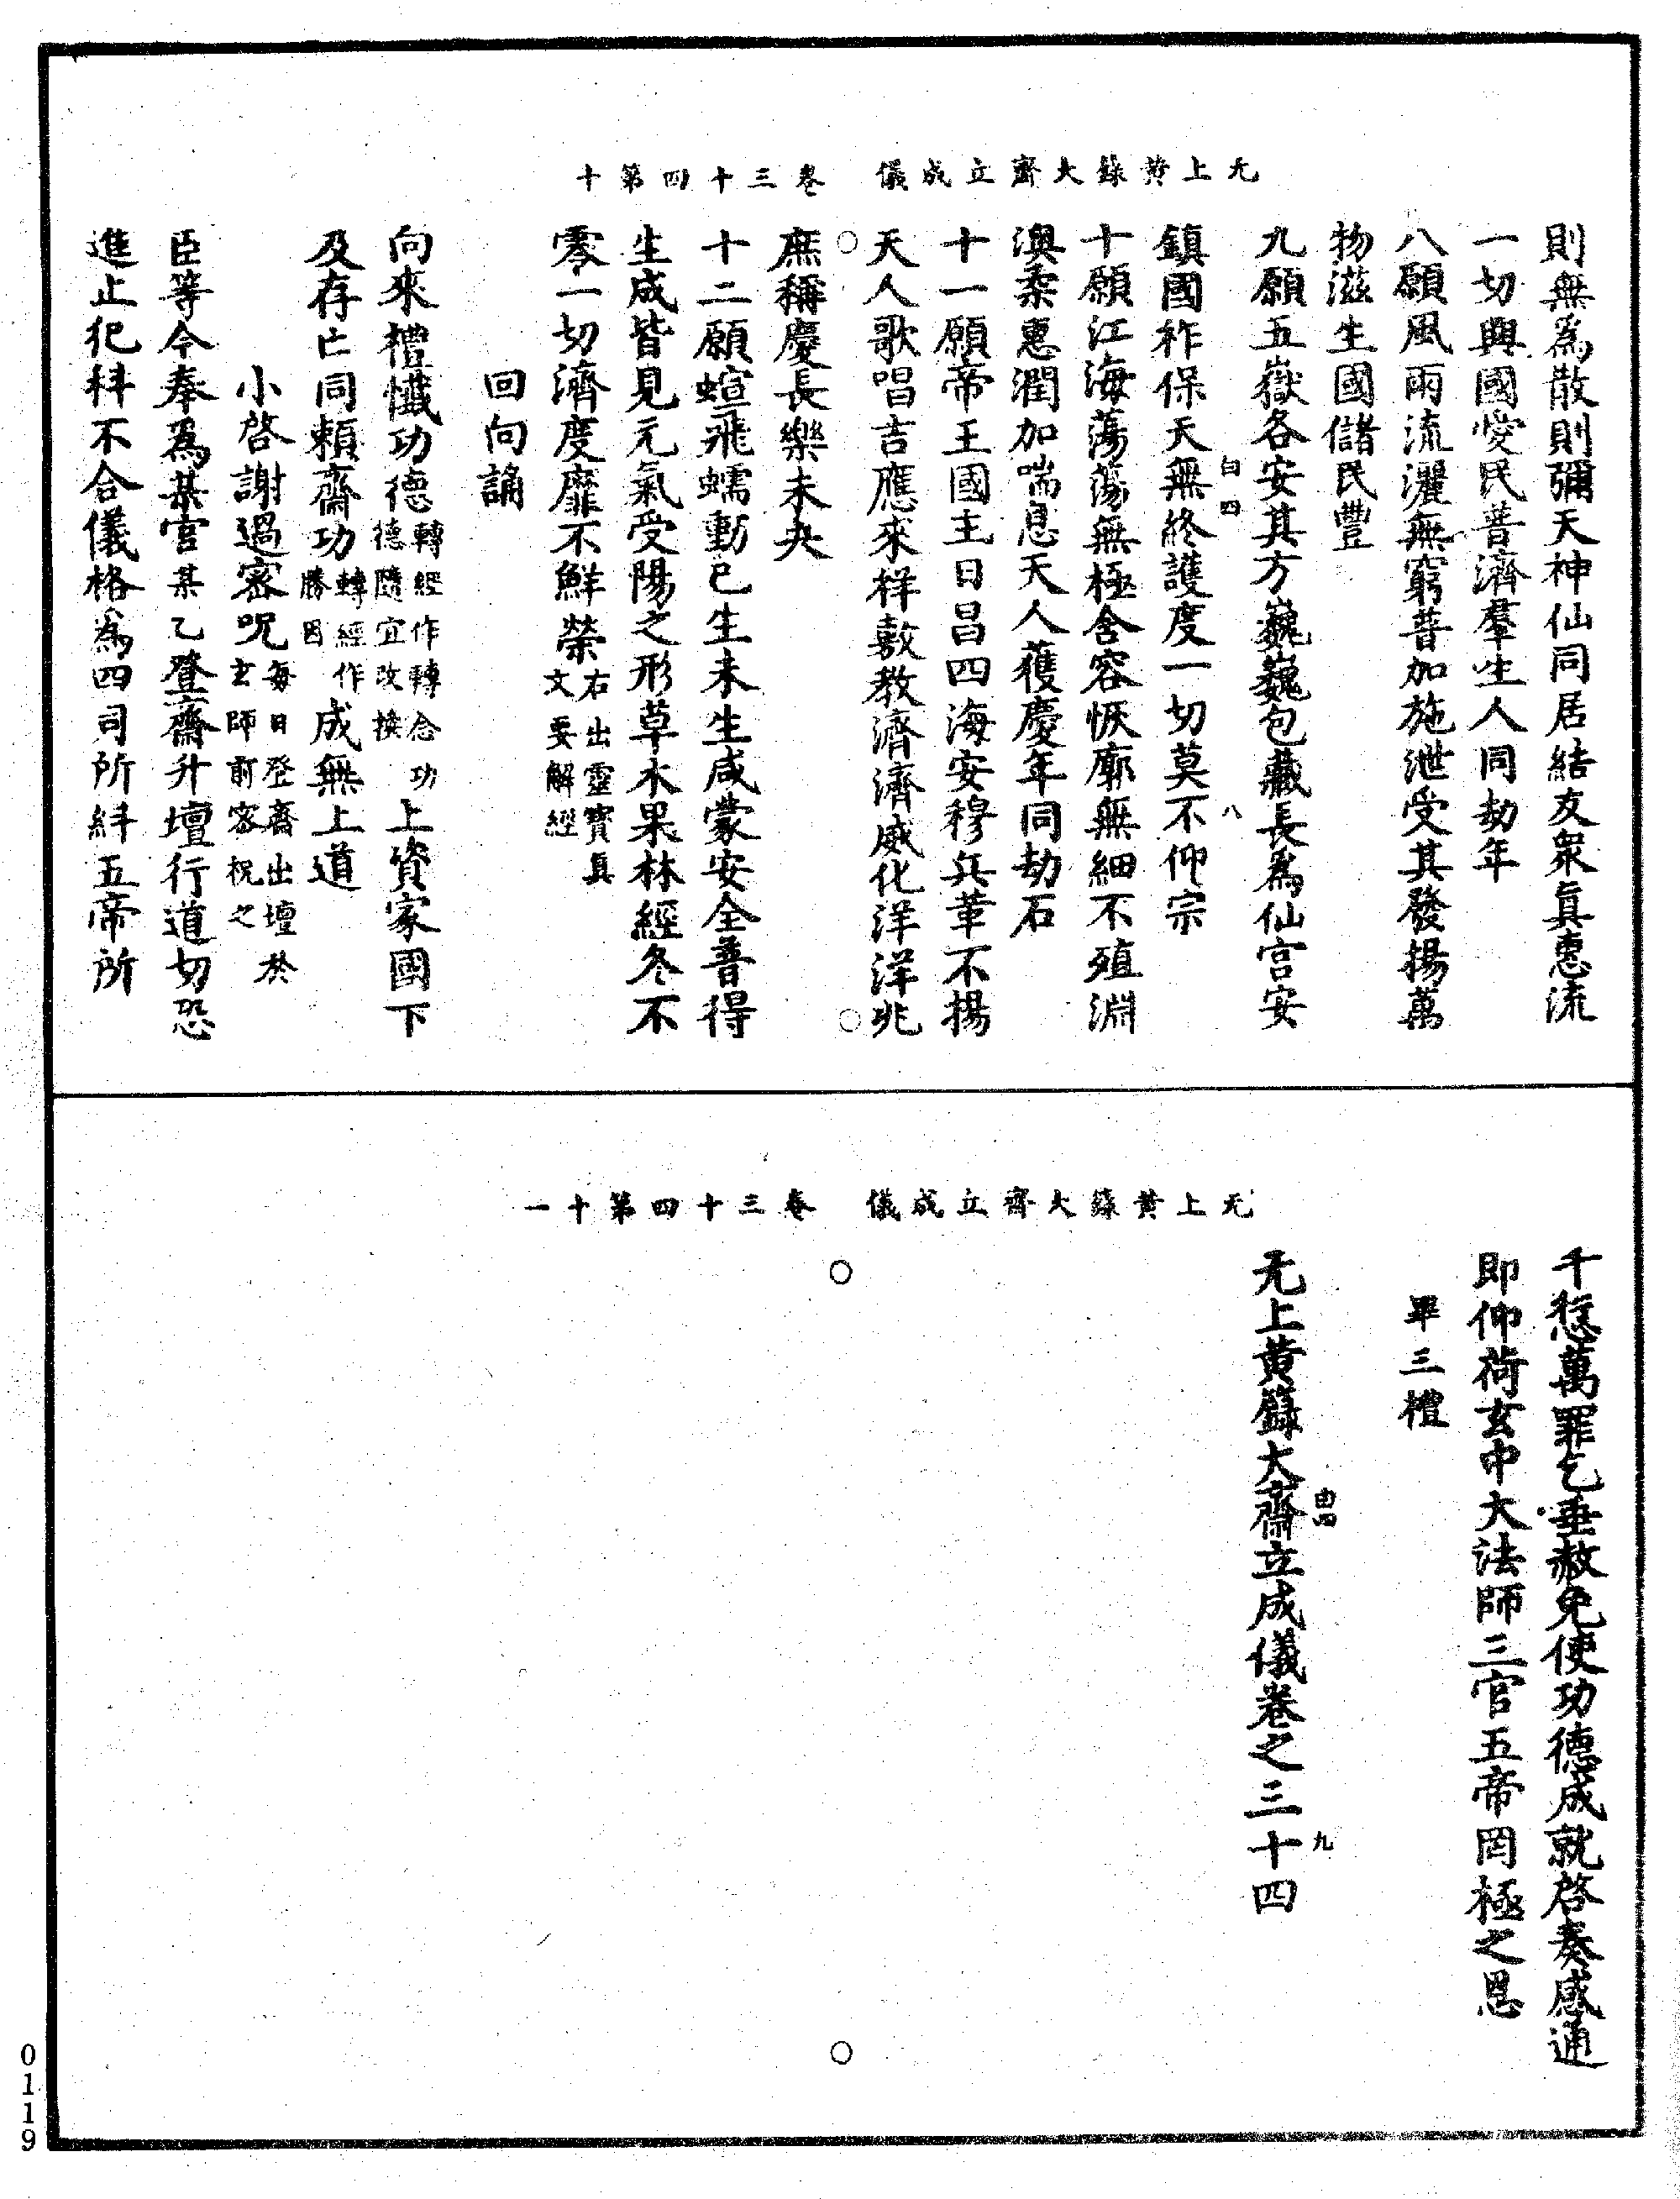 无上黄籙大齋立成儀　卷三十四第十
則無爲散則彌天神仙同居結友衆眞惠流
一切興國愛民普濟羣生人同劫年
八願風雨流灑無窮普加施泄受其發揚萬
物滋生國儲民豐
九願五嶽各安其方巍巍包藏長爲仙宫安
白四　八
鎮國祚保天無終護度一切莫不仰宗
十願江海蕩蕩無極含容恢廓無細不殖淵
澳柔惠潤加喘息天人獲慶年同劫石
十一願帝王國主日昌四海安穆兵革不揚
天人歌唱吉應來样敷教濟濟威化洋洋兆
庶稱慶長樂未央
十二願蝖飛蠕動已生未生咸蒙安全普得
生成皆見元氣受陽之形草木果林經冬不
零一切濟度靡不鮮榮右出靈寶眞文要解經
回向誦
向來禮懺功德轉經作轉念功德隨宜改換上資家國下
及存亡同賴齋功轉經作勝因成無上道
小啓謝過密呪每日登齋出壇於玄師前密祝之
臣等今奉爲某官某乙登齋升壇行道切恐
進止犯科不合儀格爲四司所糾五帝所
无上黄籙大齊立成儀　卷三十四第十一
千愆萬罪乞垂赦免使功德成就啓奏感通
即仰荷玄中大法師三官五帝罔極之恩
畢三禮
四　九
无上黄籙大齋立成儀卷之三十四
0119